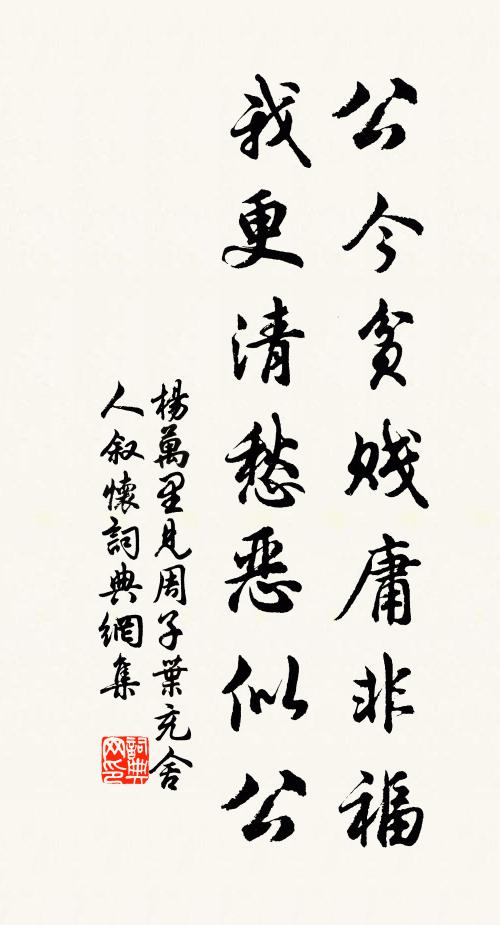 公今贫賤庸非福
我更清愁惡似公
楊萬里見周子葉充舍
人叙懷詞典網集
詞典
网印